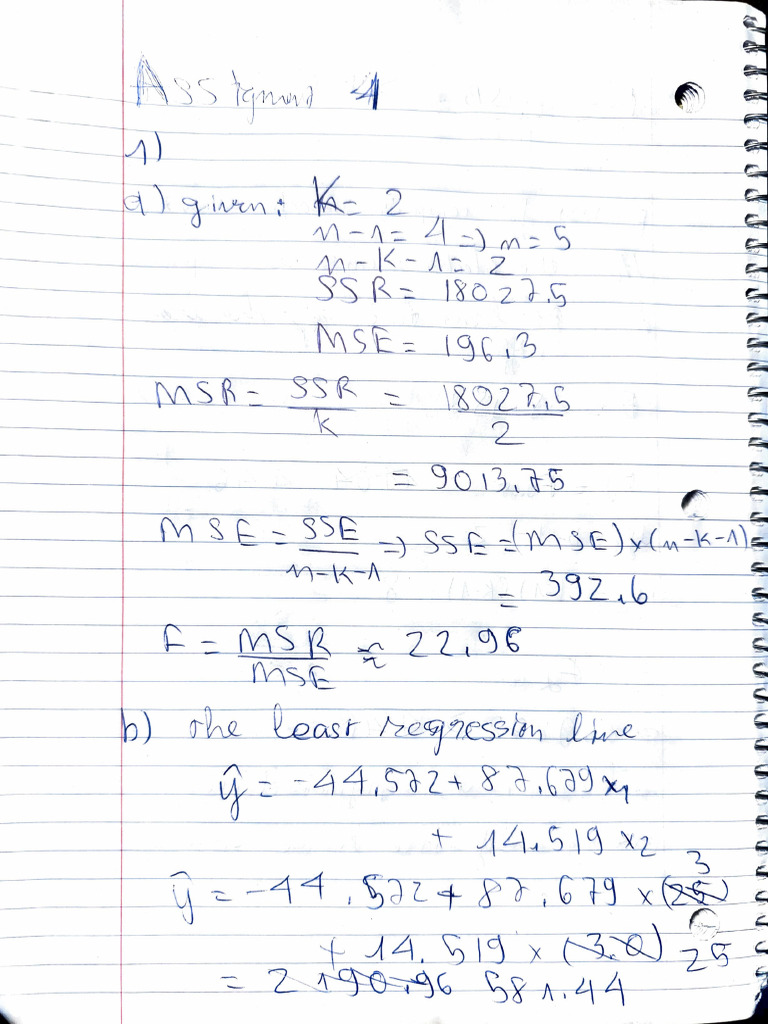 Assignment 4
1)
a) given: K = 2
n-1 = 4 => n = 5
n-K-1 = 2
SSR = 18027.5
MSE = 196.3
MSR = SSR/K = 18027.5/2
= 9013.75
MSE = SSE/n-K-1 => SSE = (MSE)x(n-K-1)
= 392.6
F = MSR/MSE ≈ 22.96
b) The least regression line
ŷ = -44.572 + 87.679 x1
+ 14.519 x2
ŷ = -44.572 + 87.679 x 3
+ 14.519 x 25
= 581.44